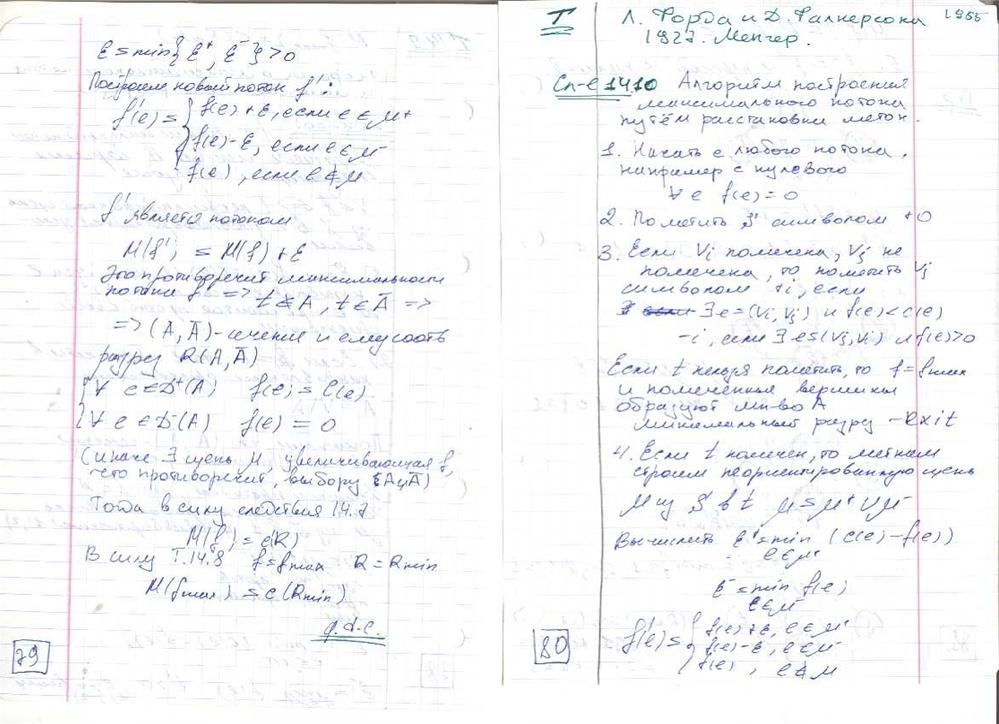 ε = min{ε⁺, ε⁻} > 0
Построим новый поток f':
f'(e) = { f(e)+ε, если e ∈ μ⁺
f(e)-ε, если e ∈ μ⁻
f(e), если e ∉ μ
f' является потоком
M(f') = M(f)+ε
Это противоречит максимальности
потока f => t ∉ A, t ∈ Ā =>
=> (A, Ā)-сечение и ему соотв
разрез R(A, Ā)
{ ∀ e ∈ D⁺(A) f(e) = c(e)
∀ e ∈ D⁻(A) f(e) = 0
(иначе ∃ цепь μ, увеличивающая f,
что противоречит выбору (A и Ā)
Тогда в силу следствия 14.7
M(f) = c(R)
В силу Т.14.8 f = fmax R = Rmin
M(fmax) = c(Rmin)
79
T Л. Форда и Д. Фалкерсона 1955
1927. Менгер.
Сл-е 14.10 Алгоритм построения
максимального потока
путём расстановки меток.
1. Начать с любого потока,
например с нулевого
∀ e f(e) = 0
2. Пометить S символом +0
3. Если Vi помечена, Vj не
помечена, то пометить Vj
символом +i, если
∃ e = (Vi, Vj) и f(e) < c(e)
-i, если ∃ e = (Vj, Vi) и f(e) > 0
Если t нельзя пометить, то f = fmax
и помеченные вершины
образуют мн-во A
минимальный разрез - Exit
4. Если t помечен, то по меткам
строим неориентированную цепь
μ из S в t μ = μ⁺ ∪ μ⁻
Вычислить ε⁺ = min (c(e) - f(e))
e ∈ μ⁺
ε⁻ = min f(e)
e ∈ μ⁻
f'(e) = { f(e)+ε, e ∈ μ⁺
f(e)-ε, e ∈ μ⁻
f(e), e ∉ μ
80